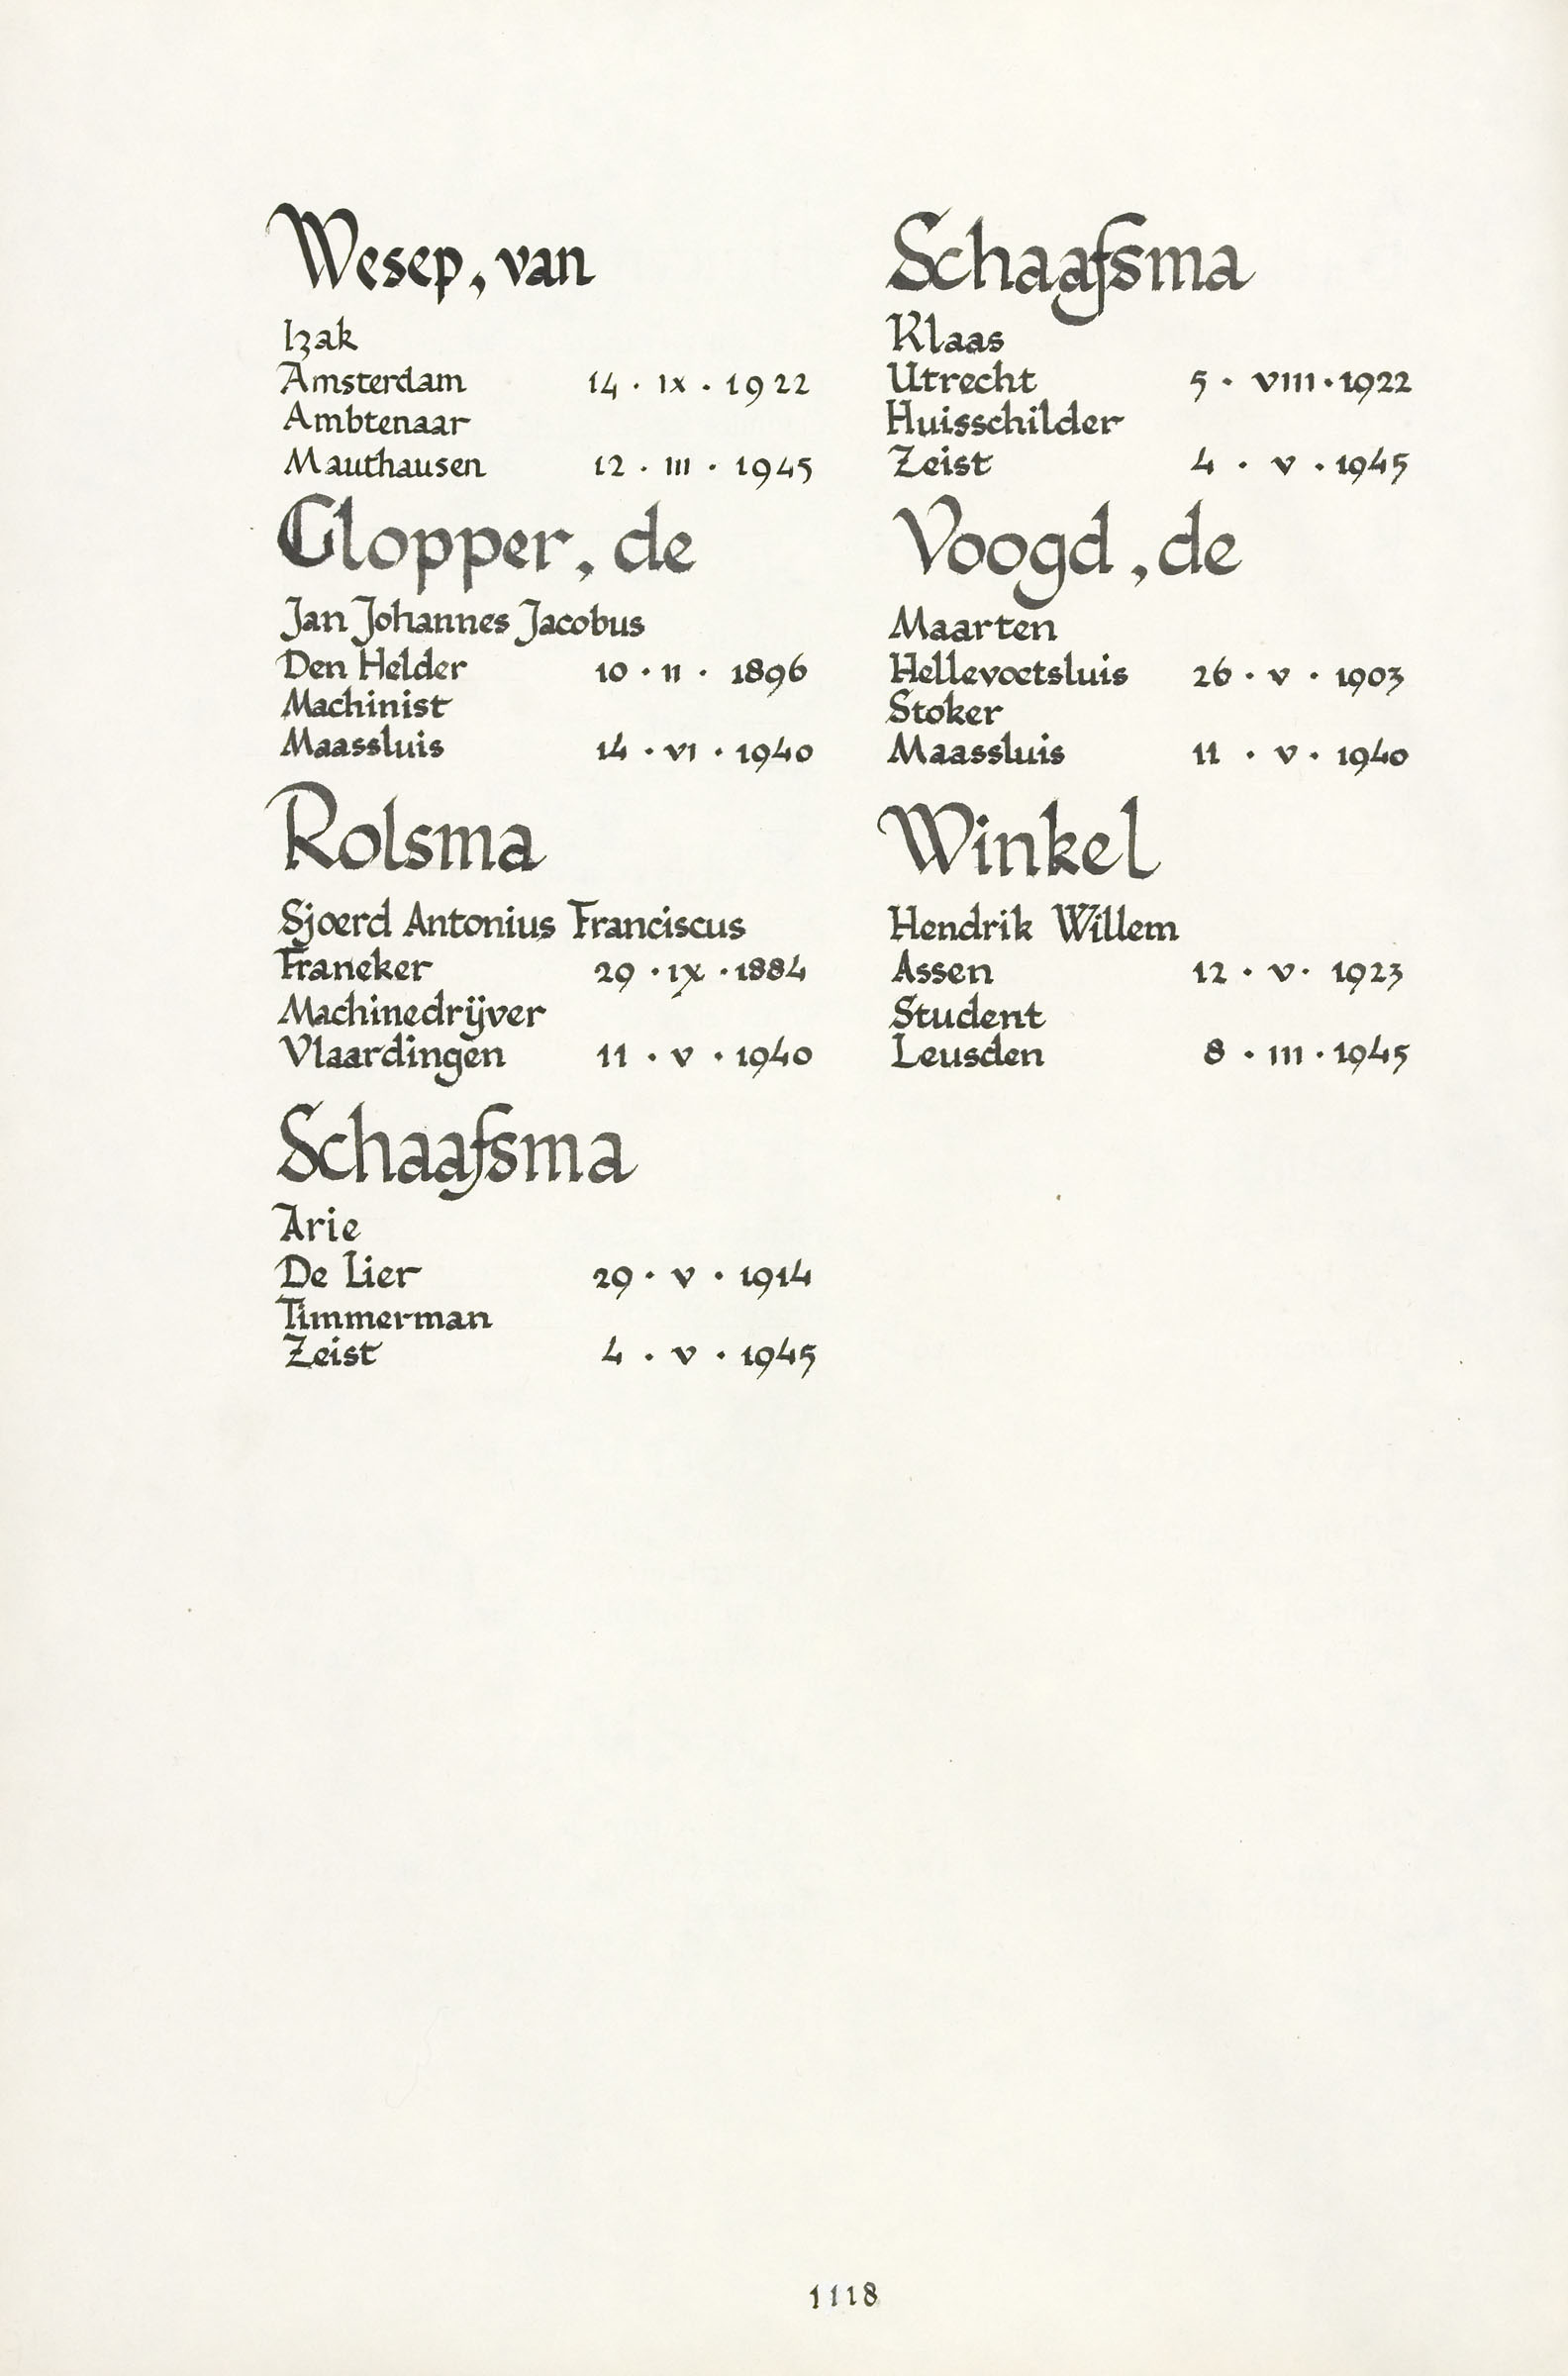 Wesep, van
Izak
Amsterdam 14 · IX · 1922
Ambtenaar
Mauthausen 12 · III · 1945
Clopper, de
Jan Johannes Jacobus
Den Helder 10 · II · 1896
Machinist
Maassluis 14 · VI · 1940
Rolsma
Sjoerd Antonius Franciscus
Franeker 29 · IX · 1884
Machinedrijver
Vlaardingen 11 · V · 1940
Schaafsma
Arie
De Lier 29 · V · 1914
Timmerman
Zeist 4 · V · 1945
Schaafsma
Klaas
Utrecht 5 · VIII · 1922
Huisschilder
Zeist 4 · V · 1945
Voogd, de
Maarten
Hellevoetsluis 26 · V · 1903
Stoker
Maassluis 11 · V · 1940
Winkel
Hendrik Willem
Assen 12 · V · 1923
Student
Leusden 8 · III · 1945
1118